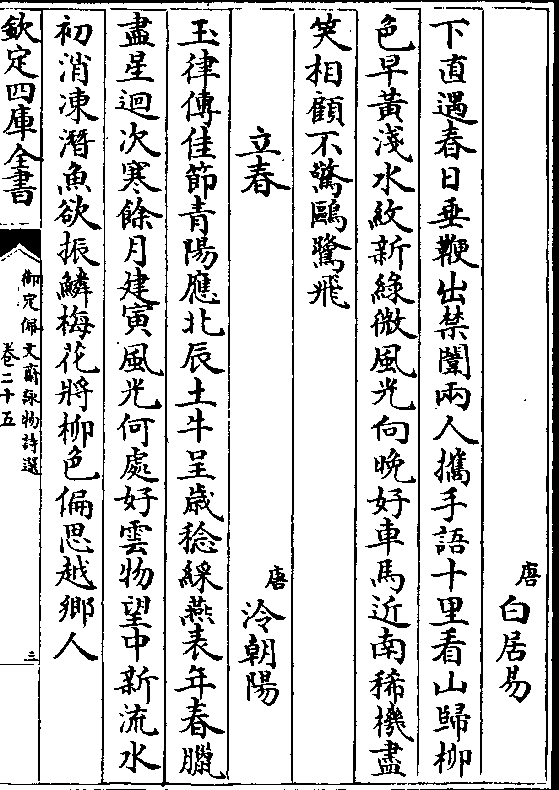 唐
白居易
下直遇春日垂鞭出禁闈兩人攜手語十里看山歸柳
色早黃淺水紋新緑微風光向晚好車馬近南稀機盡
笑相顧不驚鷗鷺飛
立春
唐
泠朝陽
玉律傳佳節青陽應北辰土牛呈歳稔綵燕表年春臘
盡星迴次寒餘月建寅風光何處好雲物望中新流水
初消凍潛魚欲振鱗梅花將柳色偏思越鄉人
欽定四庫全書
御定佩文齋詠物詩選
卷二十五
三